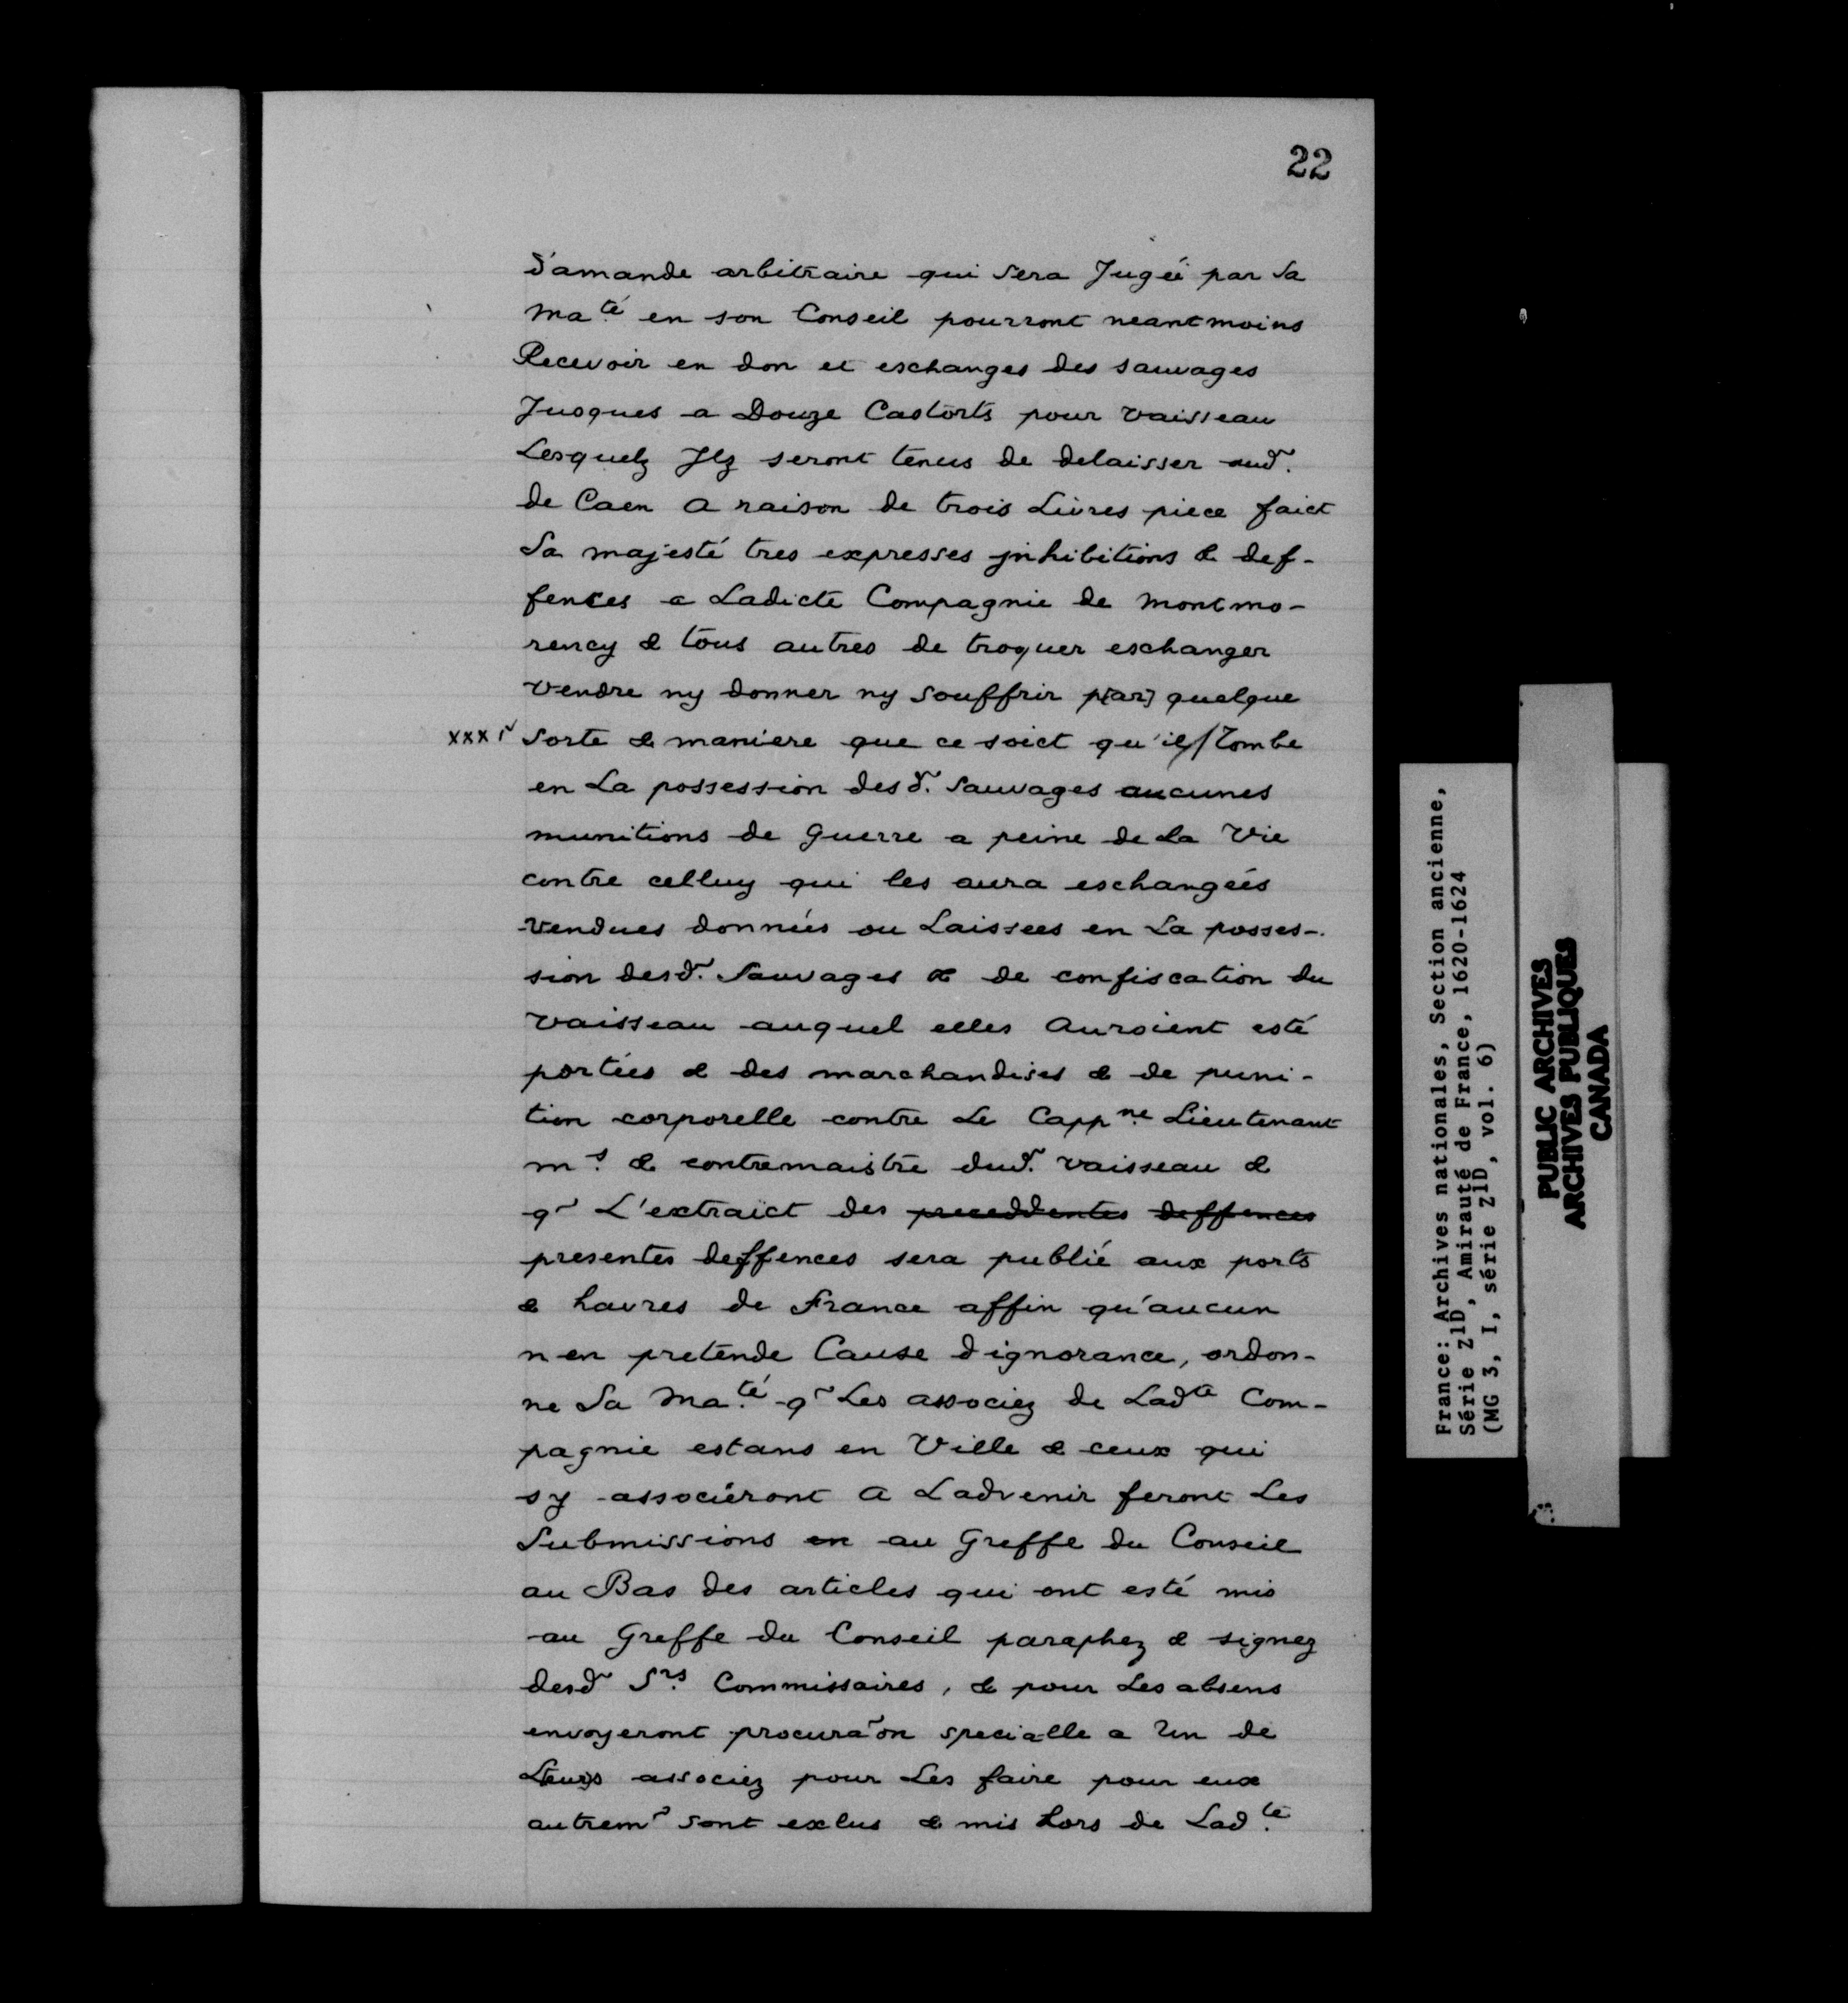 22
d'amande arbitraire qui sera Jugéé par Sa
Ma.té en son Conseil pourront neantmoins
Recevoir en don et eschanges des sauvages
Jusques a Douze Castorts pour vaisseau
Lesquelz Jlz seront tenus de delaisser aud.
de Caen a raison de trois Livres piece faict
Sa majesté tres expresses jnhibitions & def-
fences a Ladicte Compagnie de Montmo-
rency & tous autres de troquer eschanger
vendre ny donner ny souffrir p[ar] quelque
xxx r sorte & maniere que ce soict qu'il/Tombe
en La possession desd. Sauvages aucunes
munitions de Guerre a peine de La Vie
contre celluy qui les aura eschangéés
vendues donnéés ou Laissees en La posses-
sion desd. Sauvages & de confiscation du
vaisseau auquel elles auroient esté
portéés & des marchandises & de puni-
tion corporelle contre Le Capp.ne Lieutenant
m.s & contremaistre dud. vaisseau &
q~ L'extraict des preceddentes deffences
presentes deffences sera publié aux ports
& havres de France affin qu'aucun
n en pretende Cause d'ignorance, ordon-
ne Sa Ma.té q~ Les associez de Lad.te Com-
pagnie estans en Ville & ceux qui
s y associeront a Ladvenir feront Les
Submissions en au Greffe du Conseil
au Bas des articles qui ont esté mis
au Greffe du Conseil paraphez & signez
desd S.rs Commissaires, & pour Les absens
envoyeront procura~on specialle a Un de
L(eur)s associez pour Les faire pour eux
autrem~ sont exlus & mis hors de Lad.te
France: Archives nationales, Section ancienne,
Série Z1D, Amirauté de France, 1620-1624
(MG 3, I, série Z1D, vol. 6)
PUBLIC ARCHIVES
ARCHIVES PUBLIQUES
CANADA